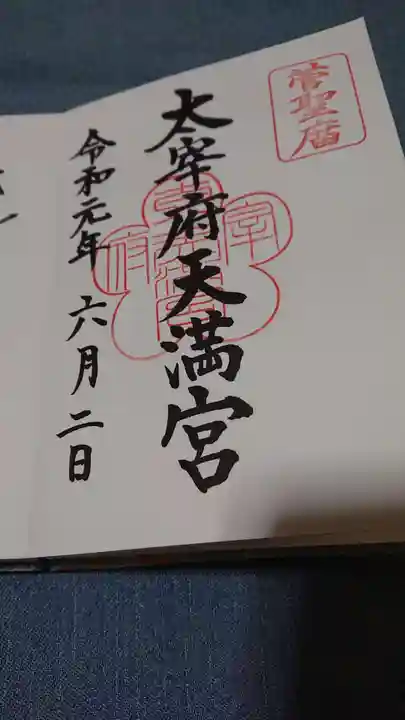 菅聖庿
太宰府天満宮
令和元年 六月二日